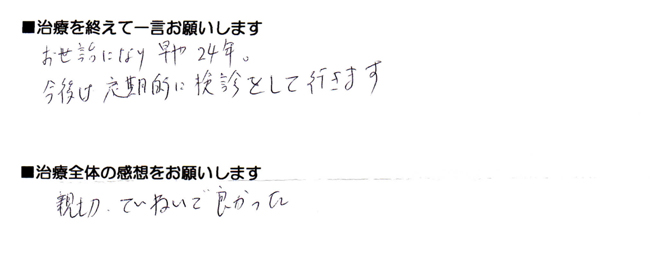 ■治療を終えて一言お願いします
お世話になり早や24年。
今後は定期的に検診をして行きます
■治療全体の感想をお願いします
親切、ていねいで良かった